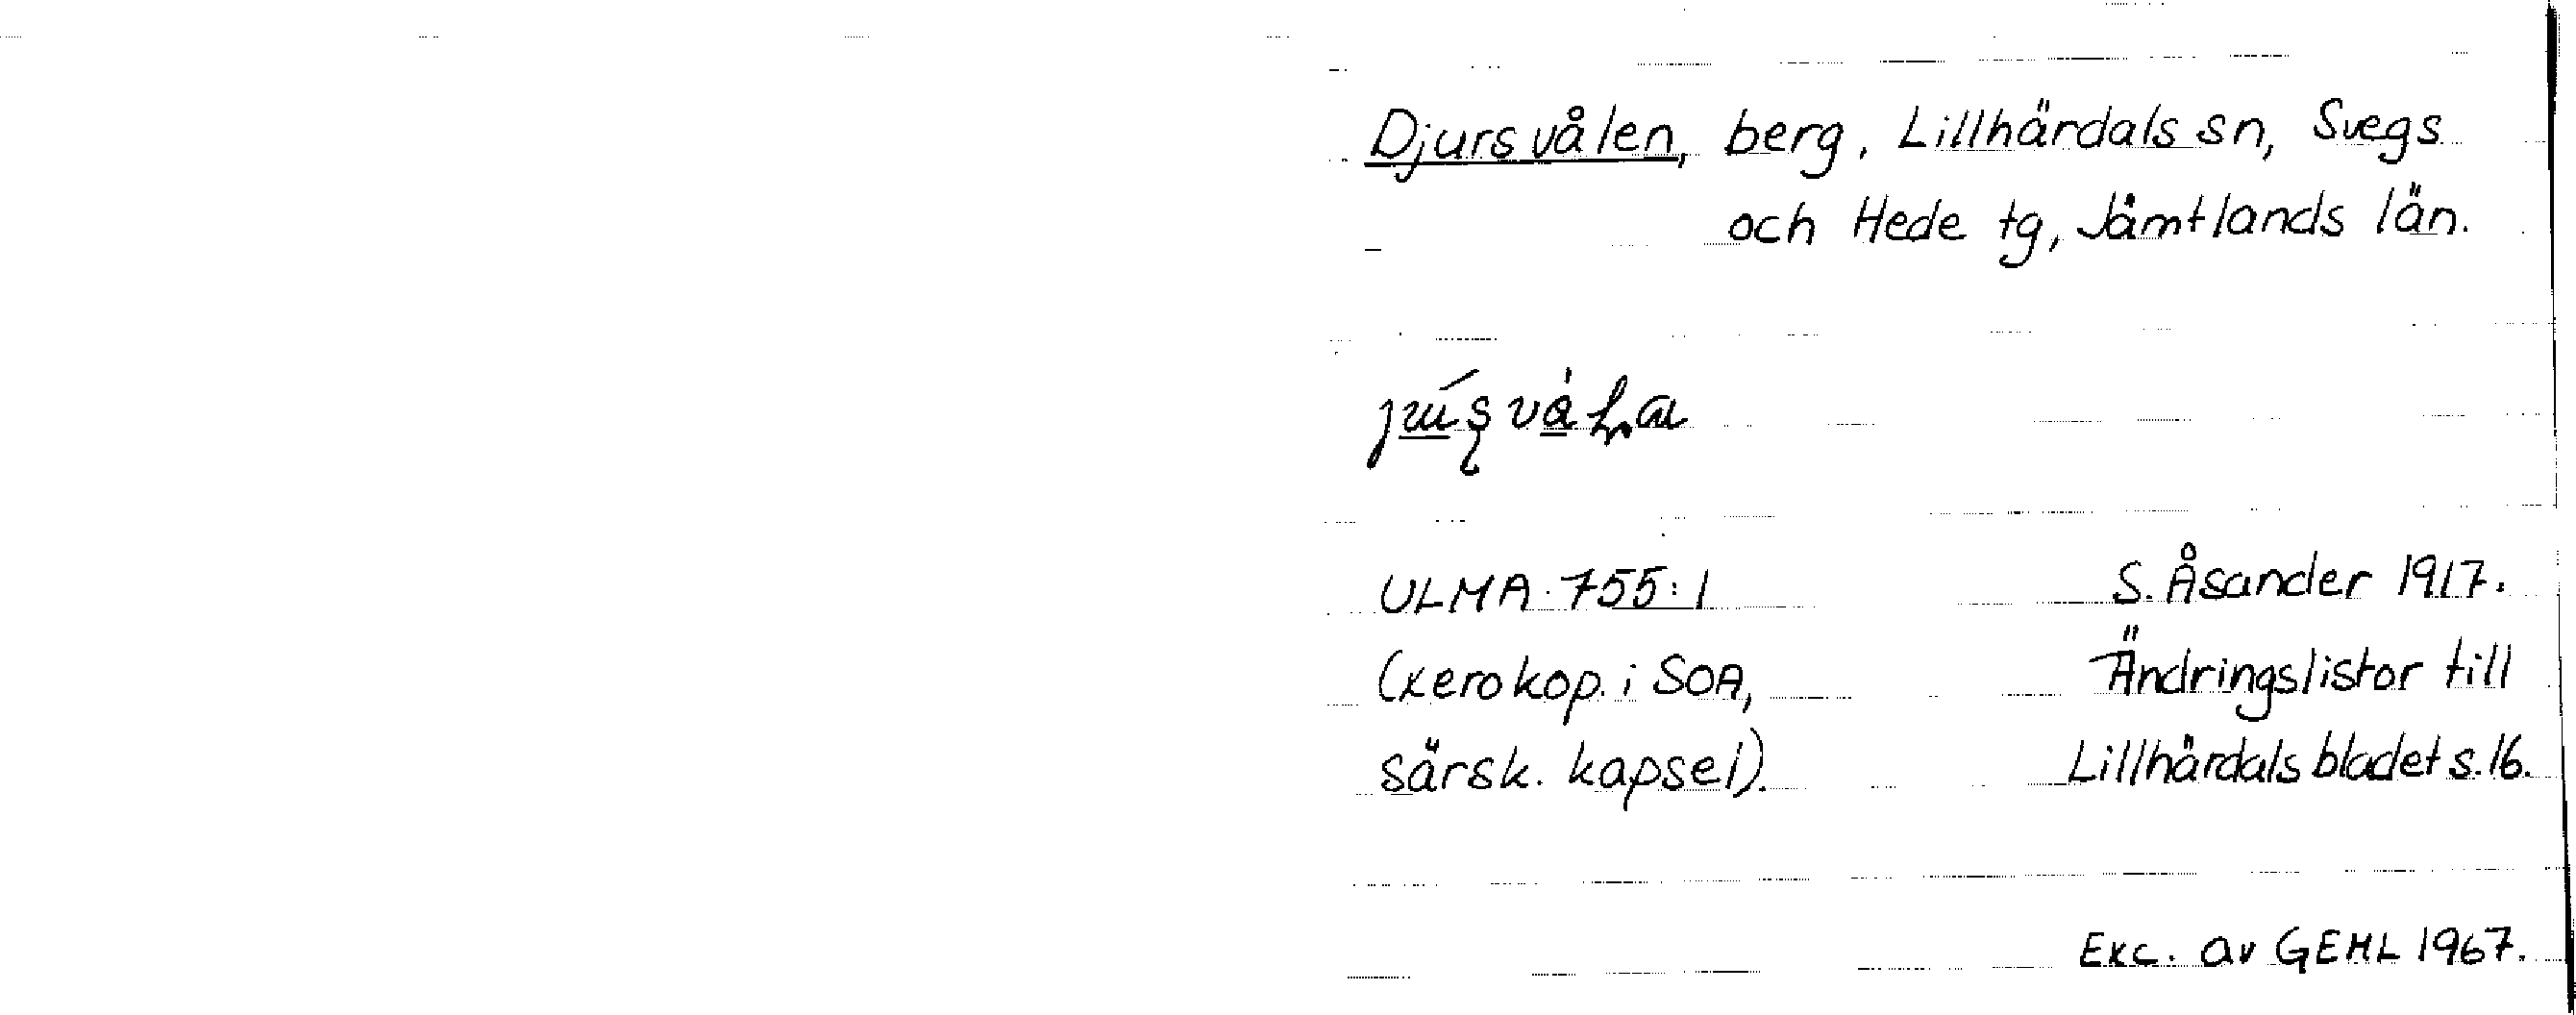 Djursvålen, berg, Lillhärdals sn, Svegs
och Hede tg, Jämtlands län.
ULMA 755:1
S. Åsander 1917.
(xerokop. i SOA,
Ändringslistor till
särsk. kapsel).
Lillhärdalsbladet s. 16.
Exc. av GEHL 1967.